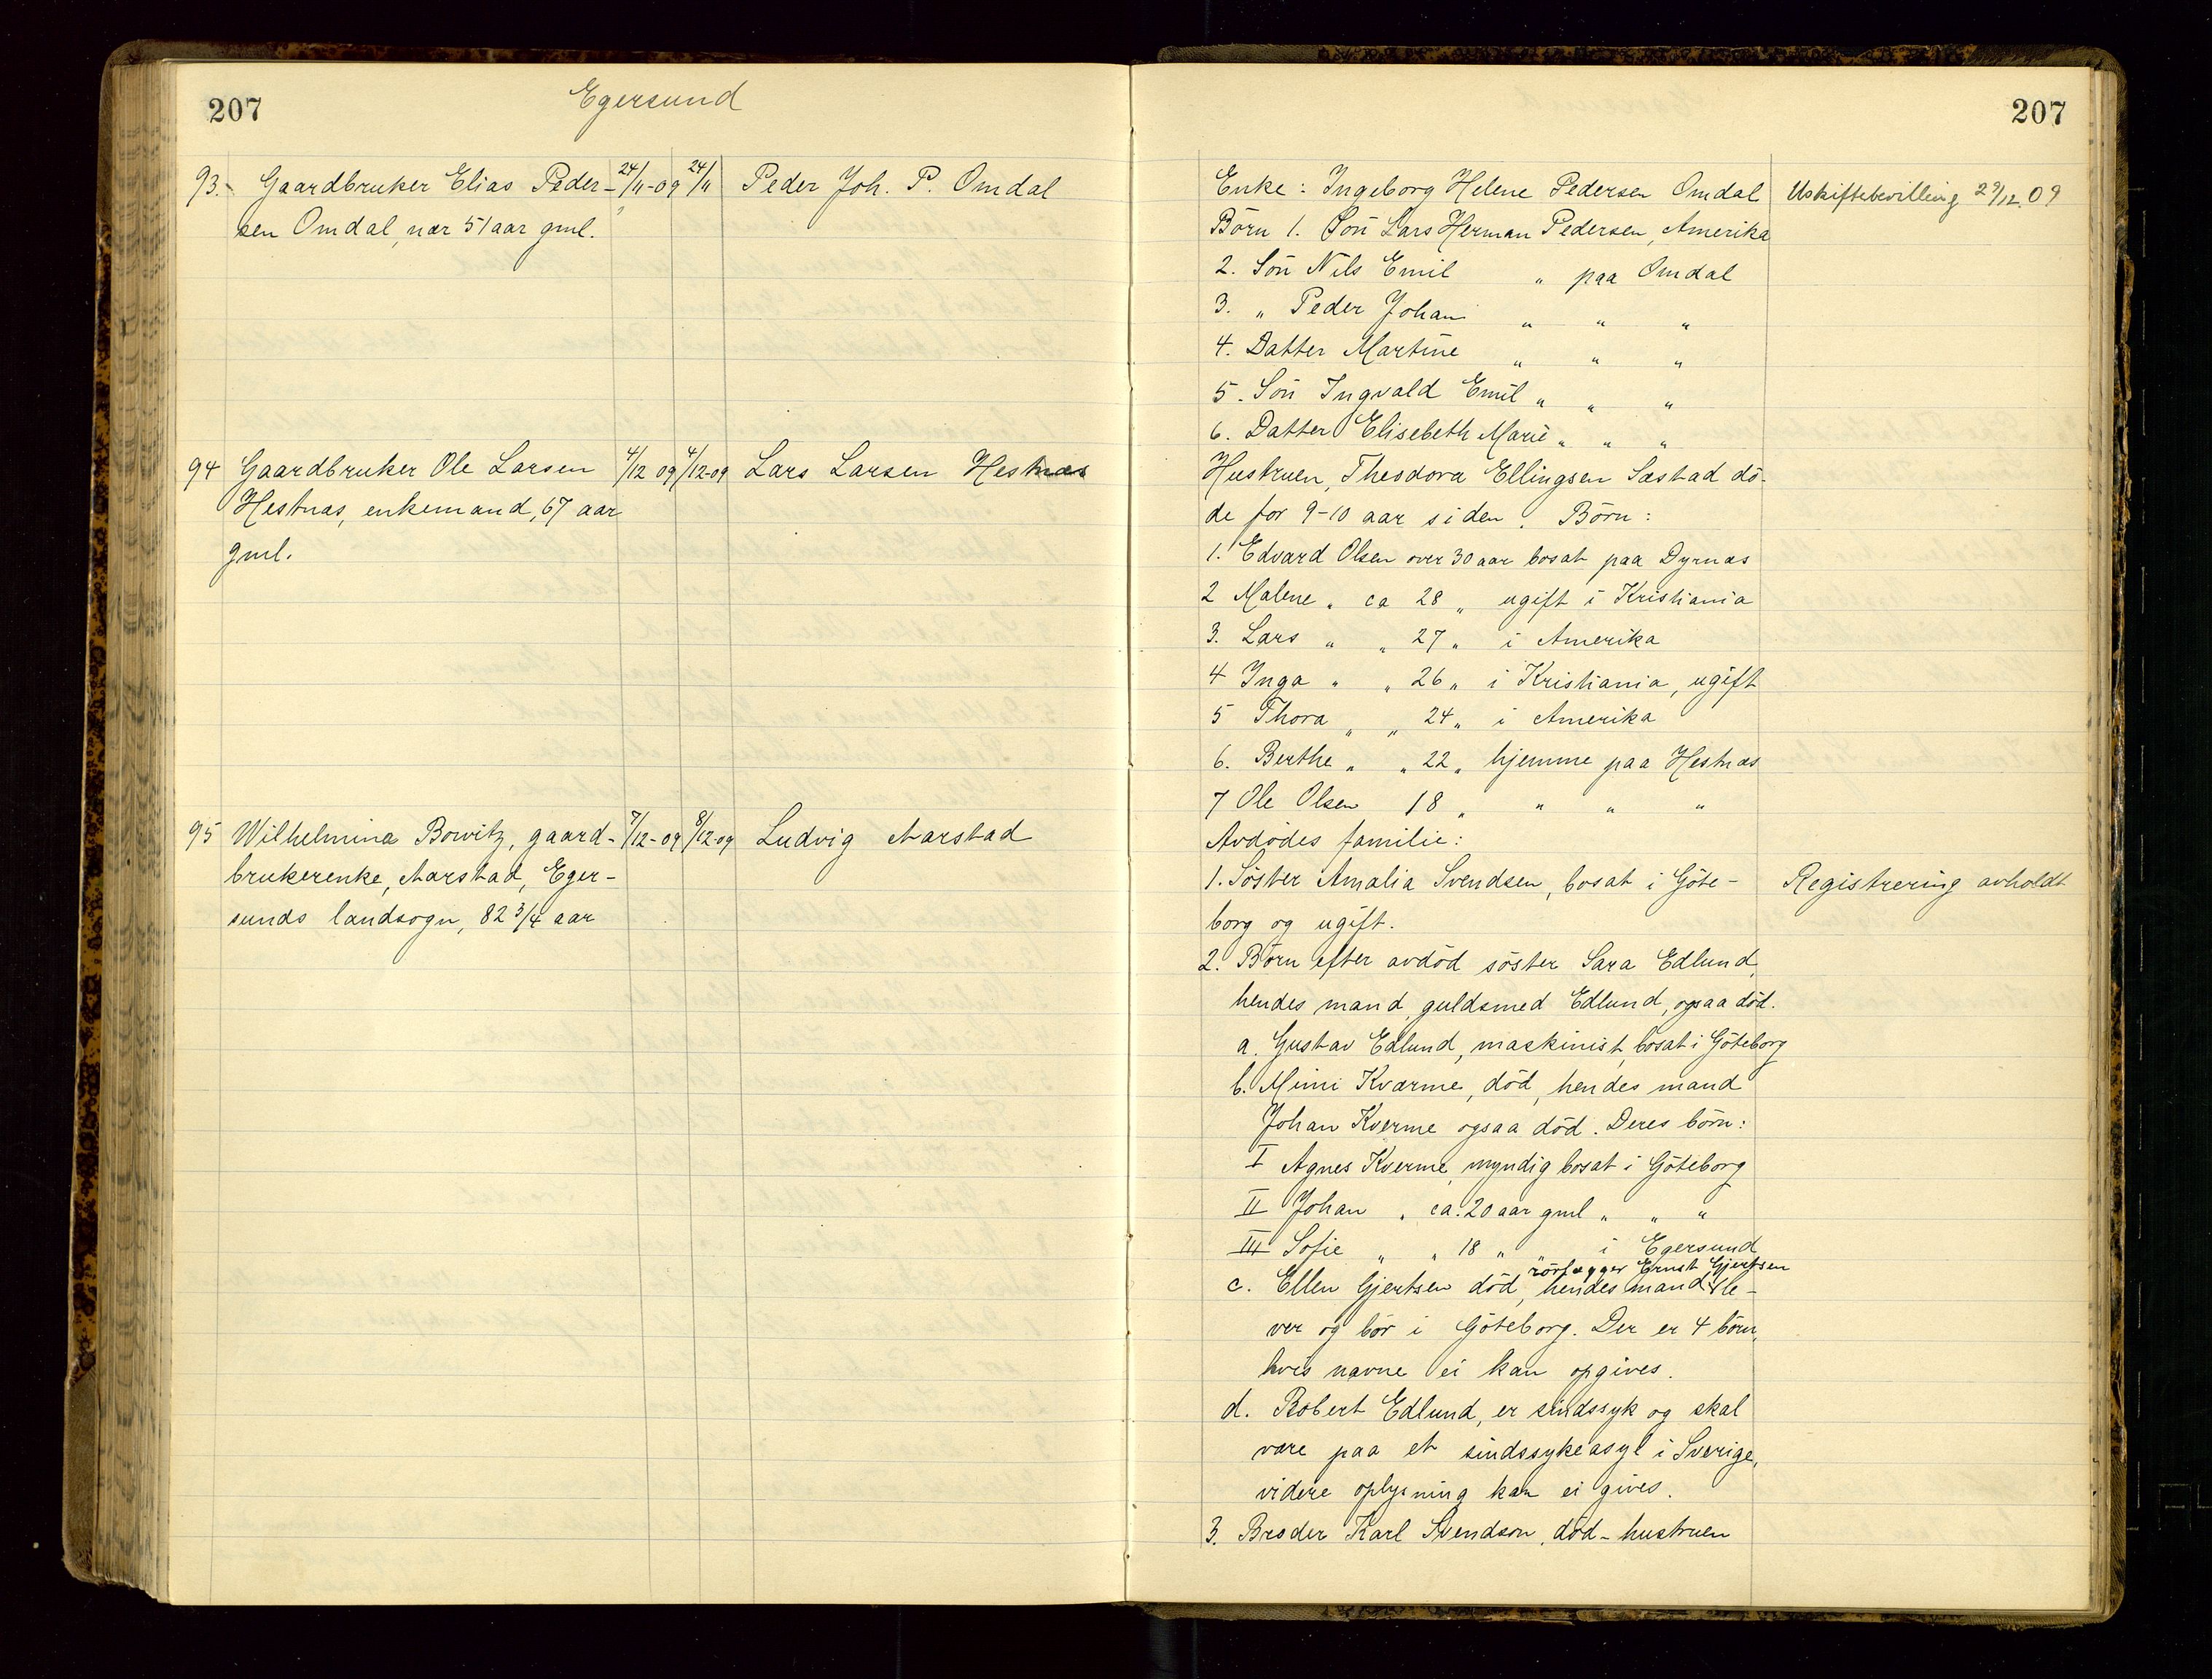 207
Egersund
93. Gaardbruker Elias Peder- 24/11-09 24/11 Peder Joh. P. Omdal
sen Omdal, nær 51 aar gml.
94 Gaardbruker Ole Larsen 4/12 09 4/12-09 Lars Larsen Hestnæs
Hestnæs, enkemand, 67 aar
gml.
95 Wilhelmina Bowitz, gaard- 7/12-09 8/12-09 Ludvig Aarstad
brukerenke, Aarstad, Eger-
sunds landsogn, 82 3/4 aar
207
Enke: Ingeborg Helene Pedersen Omdal Uskiftebevilling 29/12.09
Börn 1. Sön Lars Herman Pedersen, Amerika
2. Sön Nils Emil " paa Omdal
3. " Peder Johan " " "
4. Datter Martine " " "
5. Sön Ingvald Emil " " "
6. Datter Elisebeth Marie " " "
Hustruen, Theodora Ellingsen Sæstad dö-
de for 9-10 aar siden. Börn:
1. Edvard Olsen over 30 aar bosat paa Dyrnæs
2 Malene " ca 28 " ugift i Kristiania
3. Lars " " 27 " i Amerika
4 Inga " " 26 " i Kristiania, ugift
5 Thora " " 24 " i Amerika
6. Berthe " " 22 " hjemme paa Hestnæs
7 Ole Olsen 18 " " " "
Avdödes familie:
1. Söster Amalia Svendsen, bosat i Göte- Registrering avholdt
borg og ugift.
2. Börn efter avdöd söster Sara Edlund,
hendes mand, guldsmed Edlund, ogsaa död.
a. Gustav Edlund, maskinist, bosat i Göteborg
b. Mimi Kværme, död, hendes mand
Johan Kverme ogsaa död. Deres börn:
I Agnes Kverme, myndig bosat i Göteborg
II Johan " ca. 20 aar gml " " "
III Sofie " " 18 " " i Egersund
rörlægger Ernst Gjertsen
c. Ellen Gjertsen död, hendes mand le-
ver og bor i Göteborg. Der er 4 börn,
hvis navne ei kan opgives.
d. Robert Edlund, er sindssyk og skal
være paa et sindssykeasyl i Sverige,
videre oplysning kan ei gives.
3. Broder Karl Svendson, död - hustruen